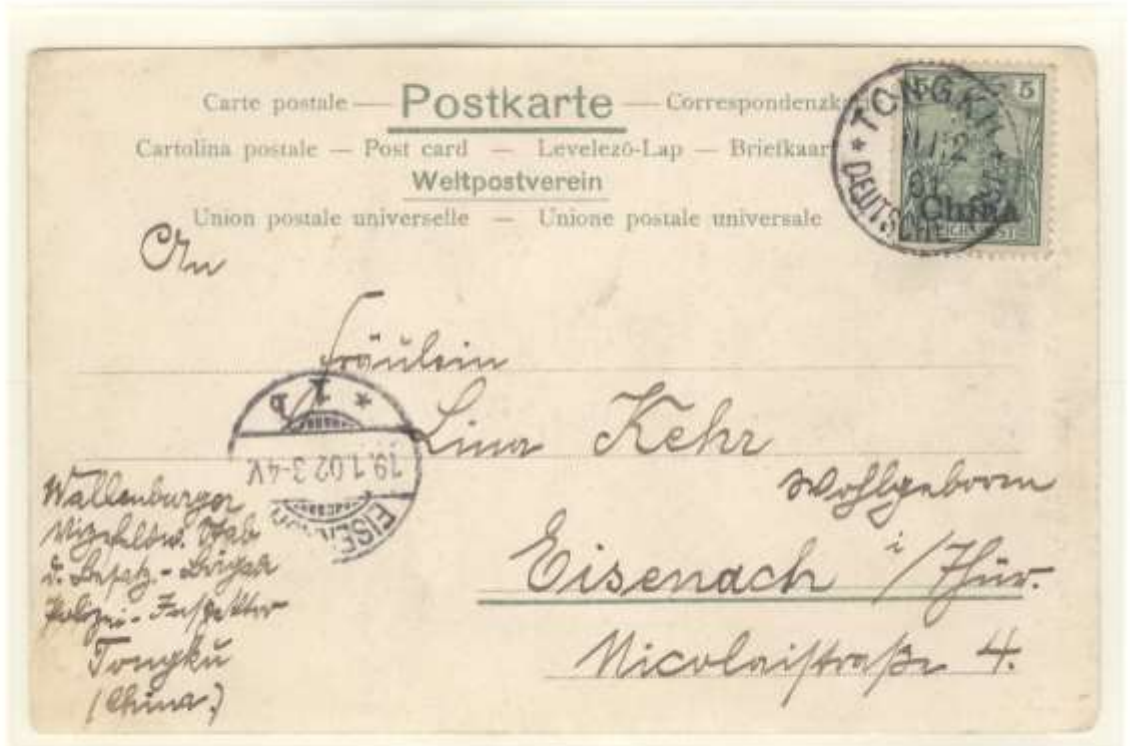 Carte postale — Postkarte — Correspondenzk
Cartolina postale — Post card — Levelező-Lap — Briefkaar
Weltpostverein
Union postale universelle — Unione postale universale
* TONGKU *
DEUTSCHE
5
China
An
Fräulein
Lina Kehr
Wohlgeboren
Eisenach i/Thür.
Nicolaistraße 4.
EISENACH
19.1.02.3-4V.
* 1 b
Wallenburger
Vizefeldw. Stab
d. Besatz.-Brigade
Polizei-Inspektor
Tongku
(China.)